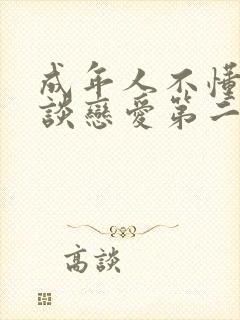 成年人不懂
談戀愛第二
高談